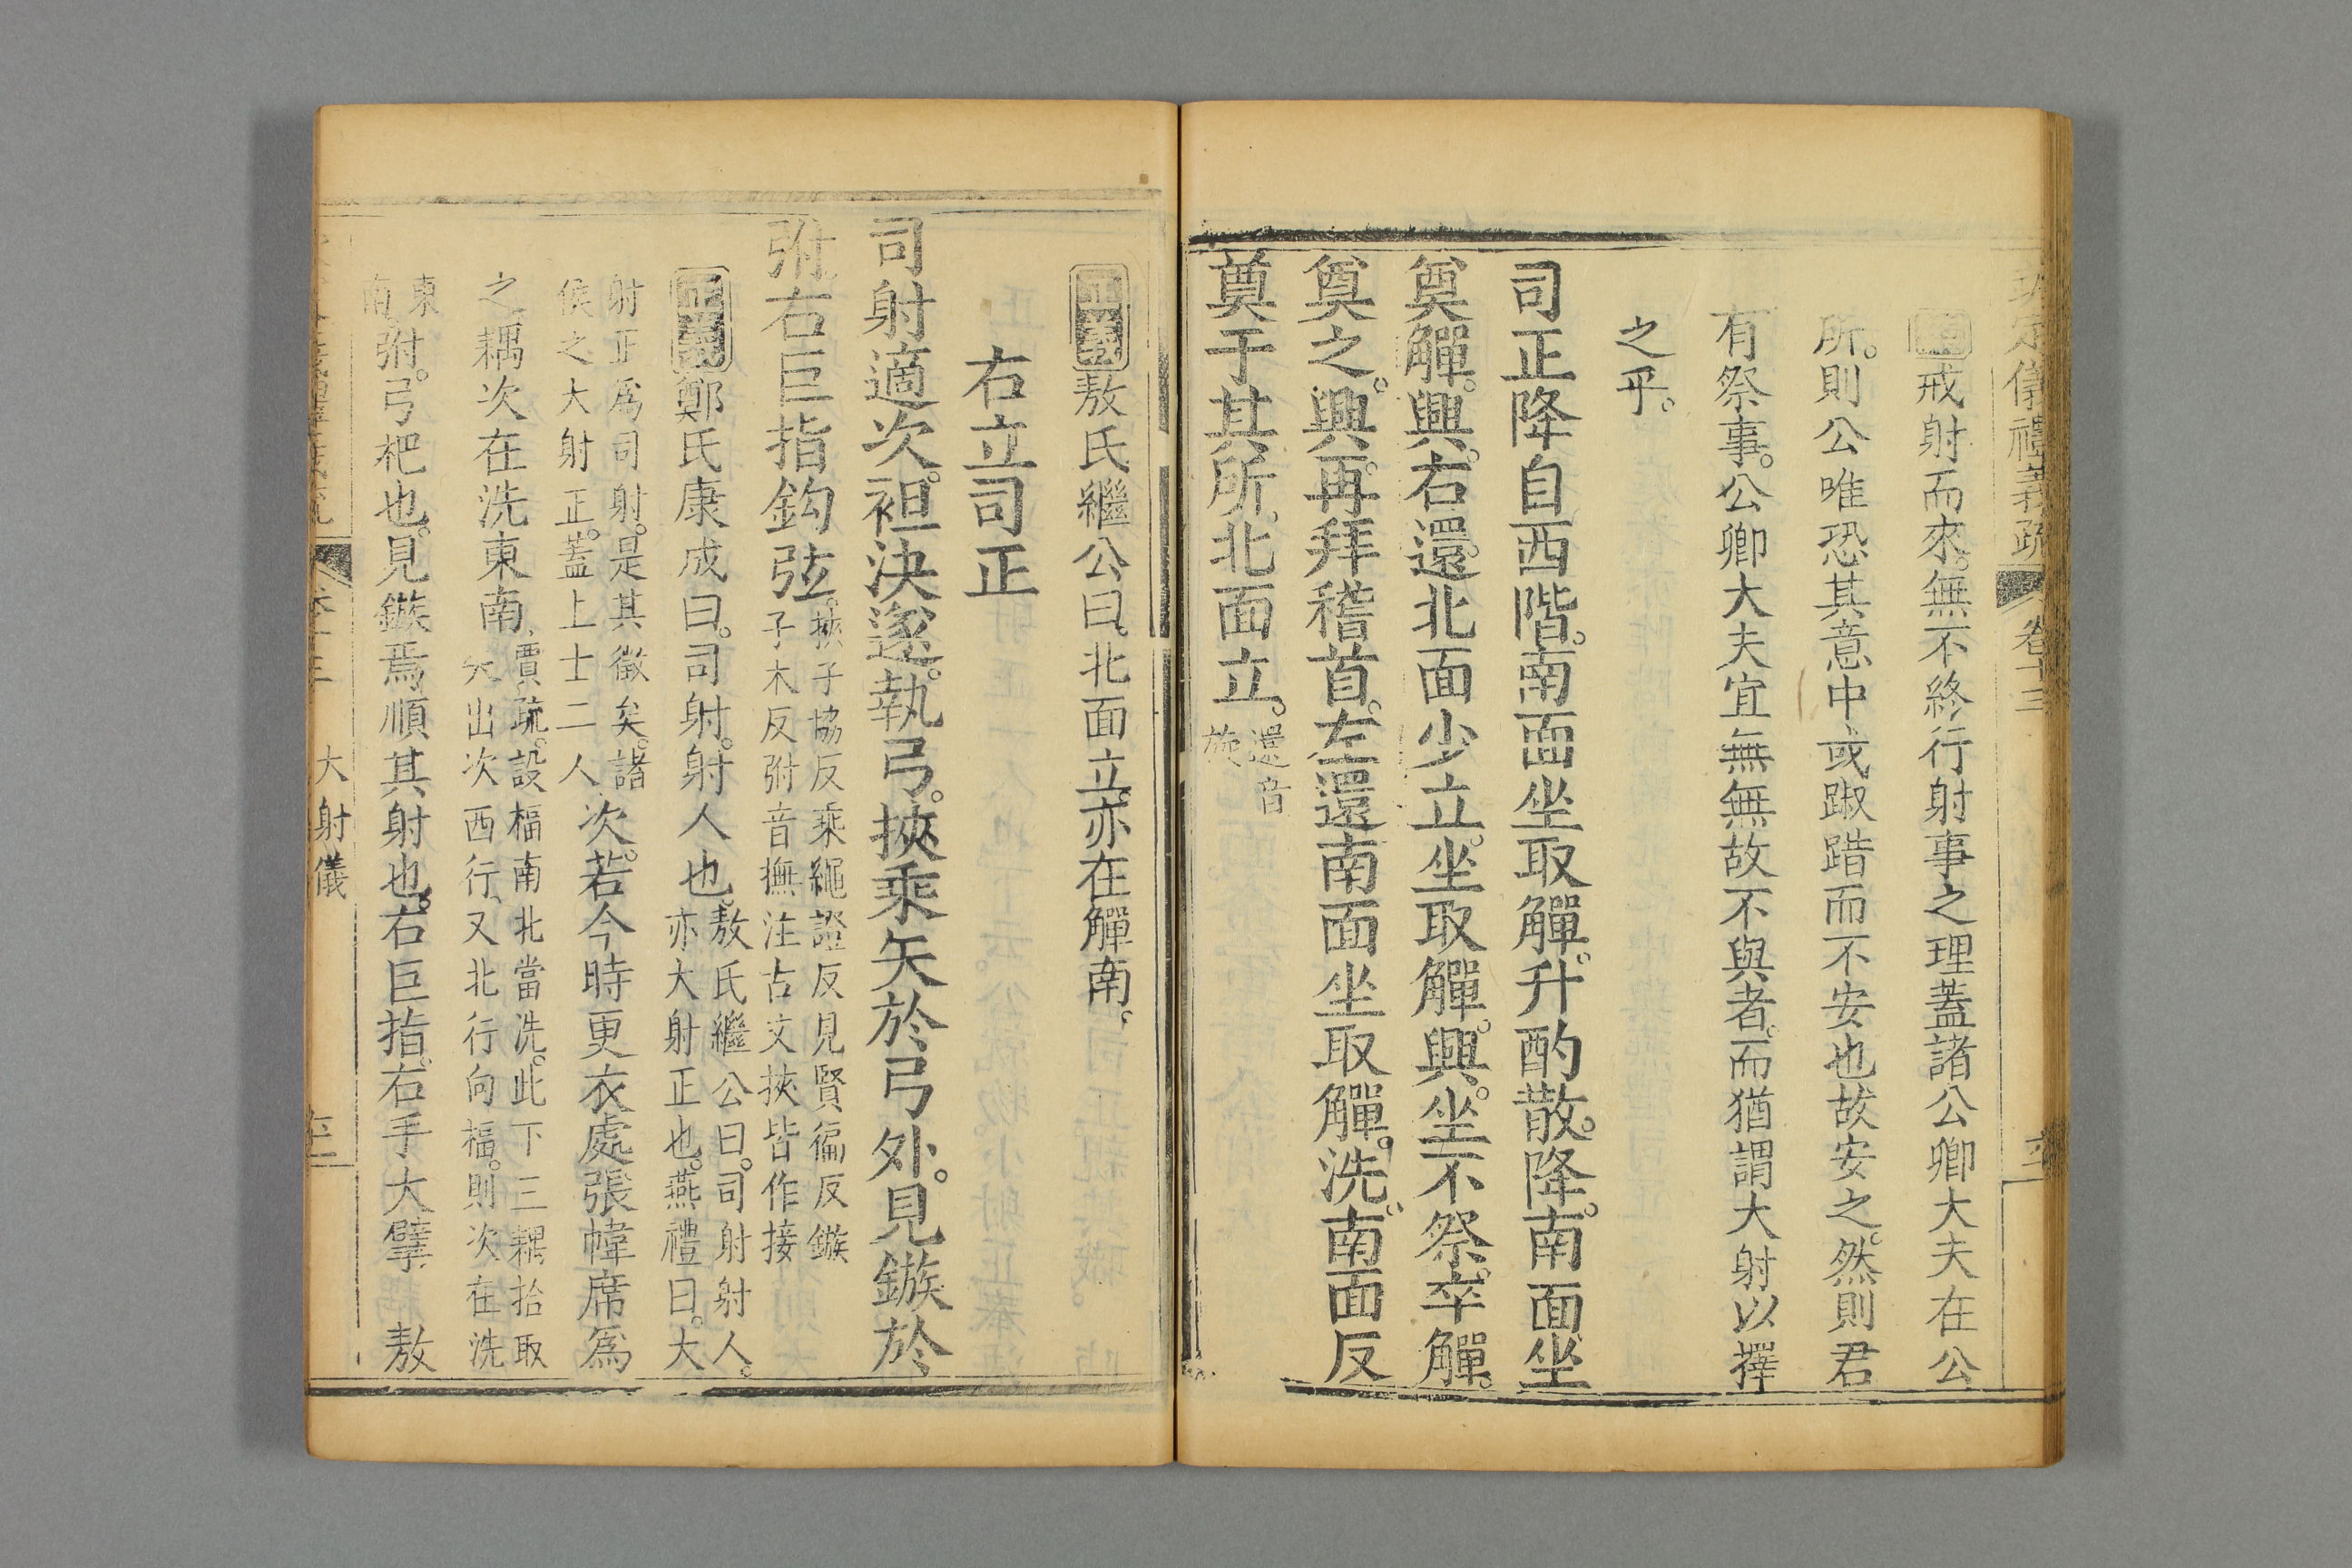 欽定儀禮義疏 卷十三
戒射而來。無不終行射事之理蓋諸公卿大夫在公
所。則公唯恐其意中或踧踖而不安也故安之。然則君
有祭事。公卿大夫宜無無故不與者。而猶謂大射以擇
之乎。
司正降自西階。南面坐取觶。升酌散。降。南面坐
奠觶。興。右還。北面少立。坐取觶。興。坐不祭。卒觶。
奠之。興。再拜稽首。左還南面坐取觶。洗。南面反
奠于其所。北面立。
還音
旋
正義敖氏繼公曰。北面立。亦在觶南。
右立司正
司射適次。袒決遂。執弓。挾乘矢於弓外。見鏃於
弣右巨指鈎弦。
挾子協反乘繩證反見賢徧反鏃
子木反弣音撫注古文挾皆作接
正義鄭氏康成曰。司射。射人也。
敖氏繼公曰。司射射人。
亦大射正也。燕禮曰。大
射正爲司射。是其徵矣。諸
侯之大射正。蓋上士二人
次。若今時更衣處張幃席爲
之。耦次在洗東南。
賈疏。設楅南北當洗。此下三耦拾取
矢出次西行。又北行向楅。則次在洗
東
南。
弣。弓杷也。見鏃焉順其射也。右巨指。右手大擘 敖
大射儀